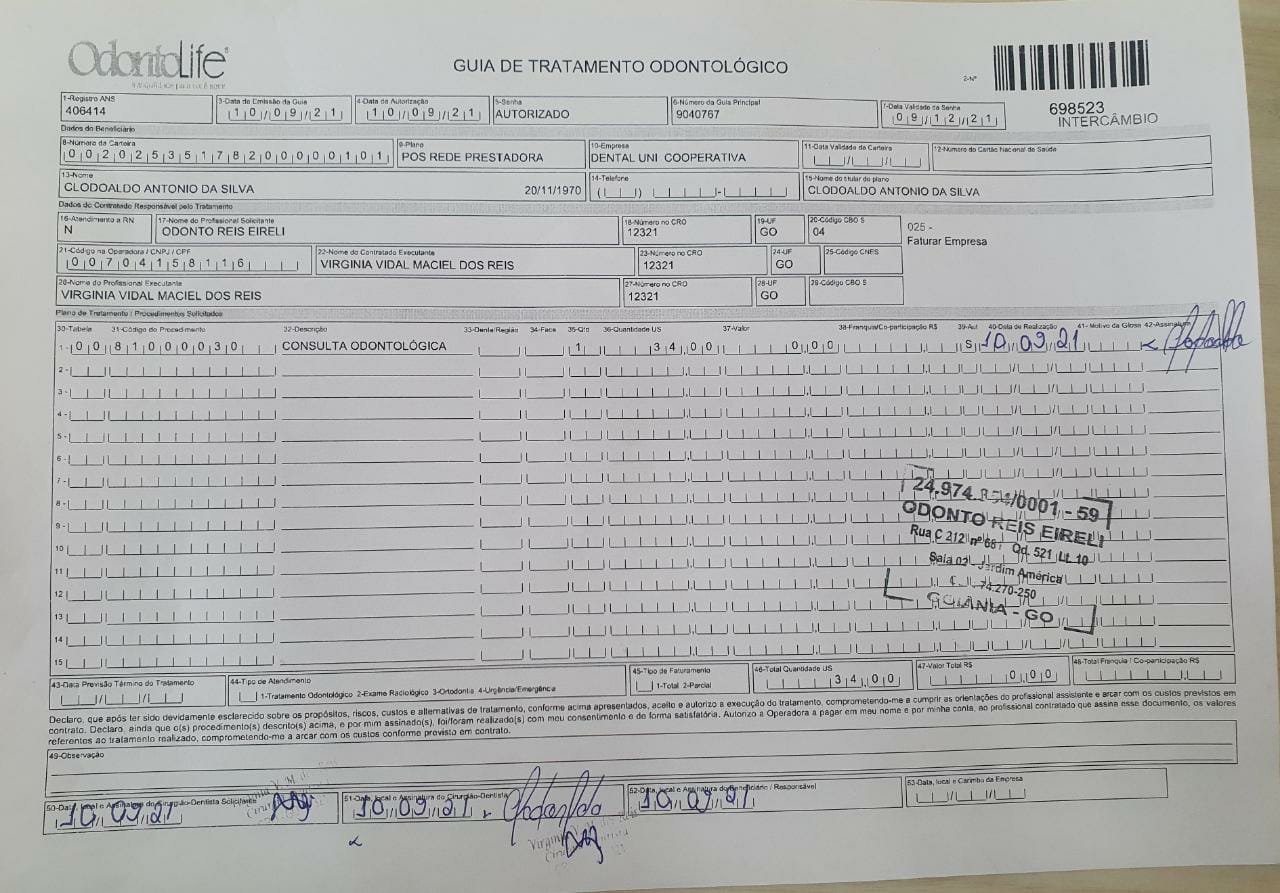 OdontoLife
GUIA DE TRATAMENTO ODONTOLÓGICO
2-Nº
698523
INTERCÂMBIO
1-Registro ANS 3-Data de Emissão da Guia 4-Data de Autorização 5-Senha 6-Número da Guia Principal 7-Data Validade da Senha
406414 10/09/21 10/09/21 AUTORIZADO 9040767 09/12/21
Dados do Beneficiário
8-Número da Carteira 9-Plano 10-Empresa 11-Data Validade da Carteira 12-Número do Cartão Nacional de Saúde
00202535178200000101 POS REDE PRESTADORA DENTAL UNI COOPERATIVA
13-Nome 14-Telefone 15-Nome do titular do plano
CLODOALDO ANTONIO DA SILVA 20/11/1970 CLODOALDO ANTONIO DA SILVA
Dados do Contratado Responsável pelo Tratamento
16-Atendimento a RN 17-Nome do Profissional Solicitante 18-Número no CRO 19-UF 20-Código CBO S
N ODONTO REIS EIRELI 12321 GO 04
025 -
Faturar Empresa
21-Código na Operadora / CNPJ / CPF 22-Nome do Contratado Executante 23-Número no CRO 24-UF 25-Código CNES
00704158116 VIRGINIA VIDAL MACIEL DOS REIS 12321 GO
26-Nome do Profissional Executante 27-Número no CRO 28-UF 29-Código CBO S
VIRGINIA VIDAL MACIEL DOS REIS 12321 GO
Plano de Tratamento / Procedimentos Solicitados
30-Tabela 31-Código do Procedimento 32-Descrição 33-Dente/Região 34-Face 35-Qtd 36-Quantidade US 37-Valor 38-Franquia/Co-participação R$ 39-Aut 40-Data de Realização 41- Motivo da Glosa 42-Assinatura
1- 00 81000030 CONSULTA ODONTOLÓGICA 1 34,00 0,00 S 10/09/21
2-
3-
4-
5-
6-
7-
8-
9-
10
11
12
13
14
15
ODONTO REIS EIRELI
Rua C 212 nº 66 Qd. 521 Lt. 10
Jardim América
74.270-250
GOIÂNIA - GO
43-Data Previsão Término do Tratamento 44-Tipo de Atendimento 45-Tipo de Faturamento 46-Total Quantidade US 47-Valor Total R$ 48-Total Franquia / Co-participação R$
1-Tratamento Odontológico 2-Exame Radiológico 3-Ortodontia 4-Urgência/Emergência 1-Total 2-Parcial 34,00 0,00
Declaro, que após ter sido devidamente esclarecido sobre os propósitos, riscos, custos e alternativas de tratamento, conforme acima apresentados, aceito e autorizo a execução do tratamento, comprometendo-me a cumprir as orientações do profissional assistente e arcar com os custos previstos em
contrato. Declaro, ainda que o(s) procedimento(s) descrito(s) acima, e por mim assinado(s), foi/foram realizado(s) com meu consentimento e de forma satisfatória. Autorizo a Operadora a pagar em meu nome e por minha conta, ao profissional contratado que assina esse documento, os valores
referentes ao tratamento realizado, comprometendo-me a arcar com os custos conforme previsto em contrato.
49-Observação
50-Data, local e Assinatura do Cirurgião-Dentista Solicitante 51-Data, local e Assinatura do Cirurgião-Dentista 52-Data, local e Assinatura do Beneficiário / Responsável 53-Data, local e Carimbo da Empresa
10/09/21 10/09/21 10/09/21